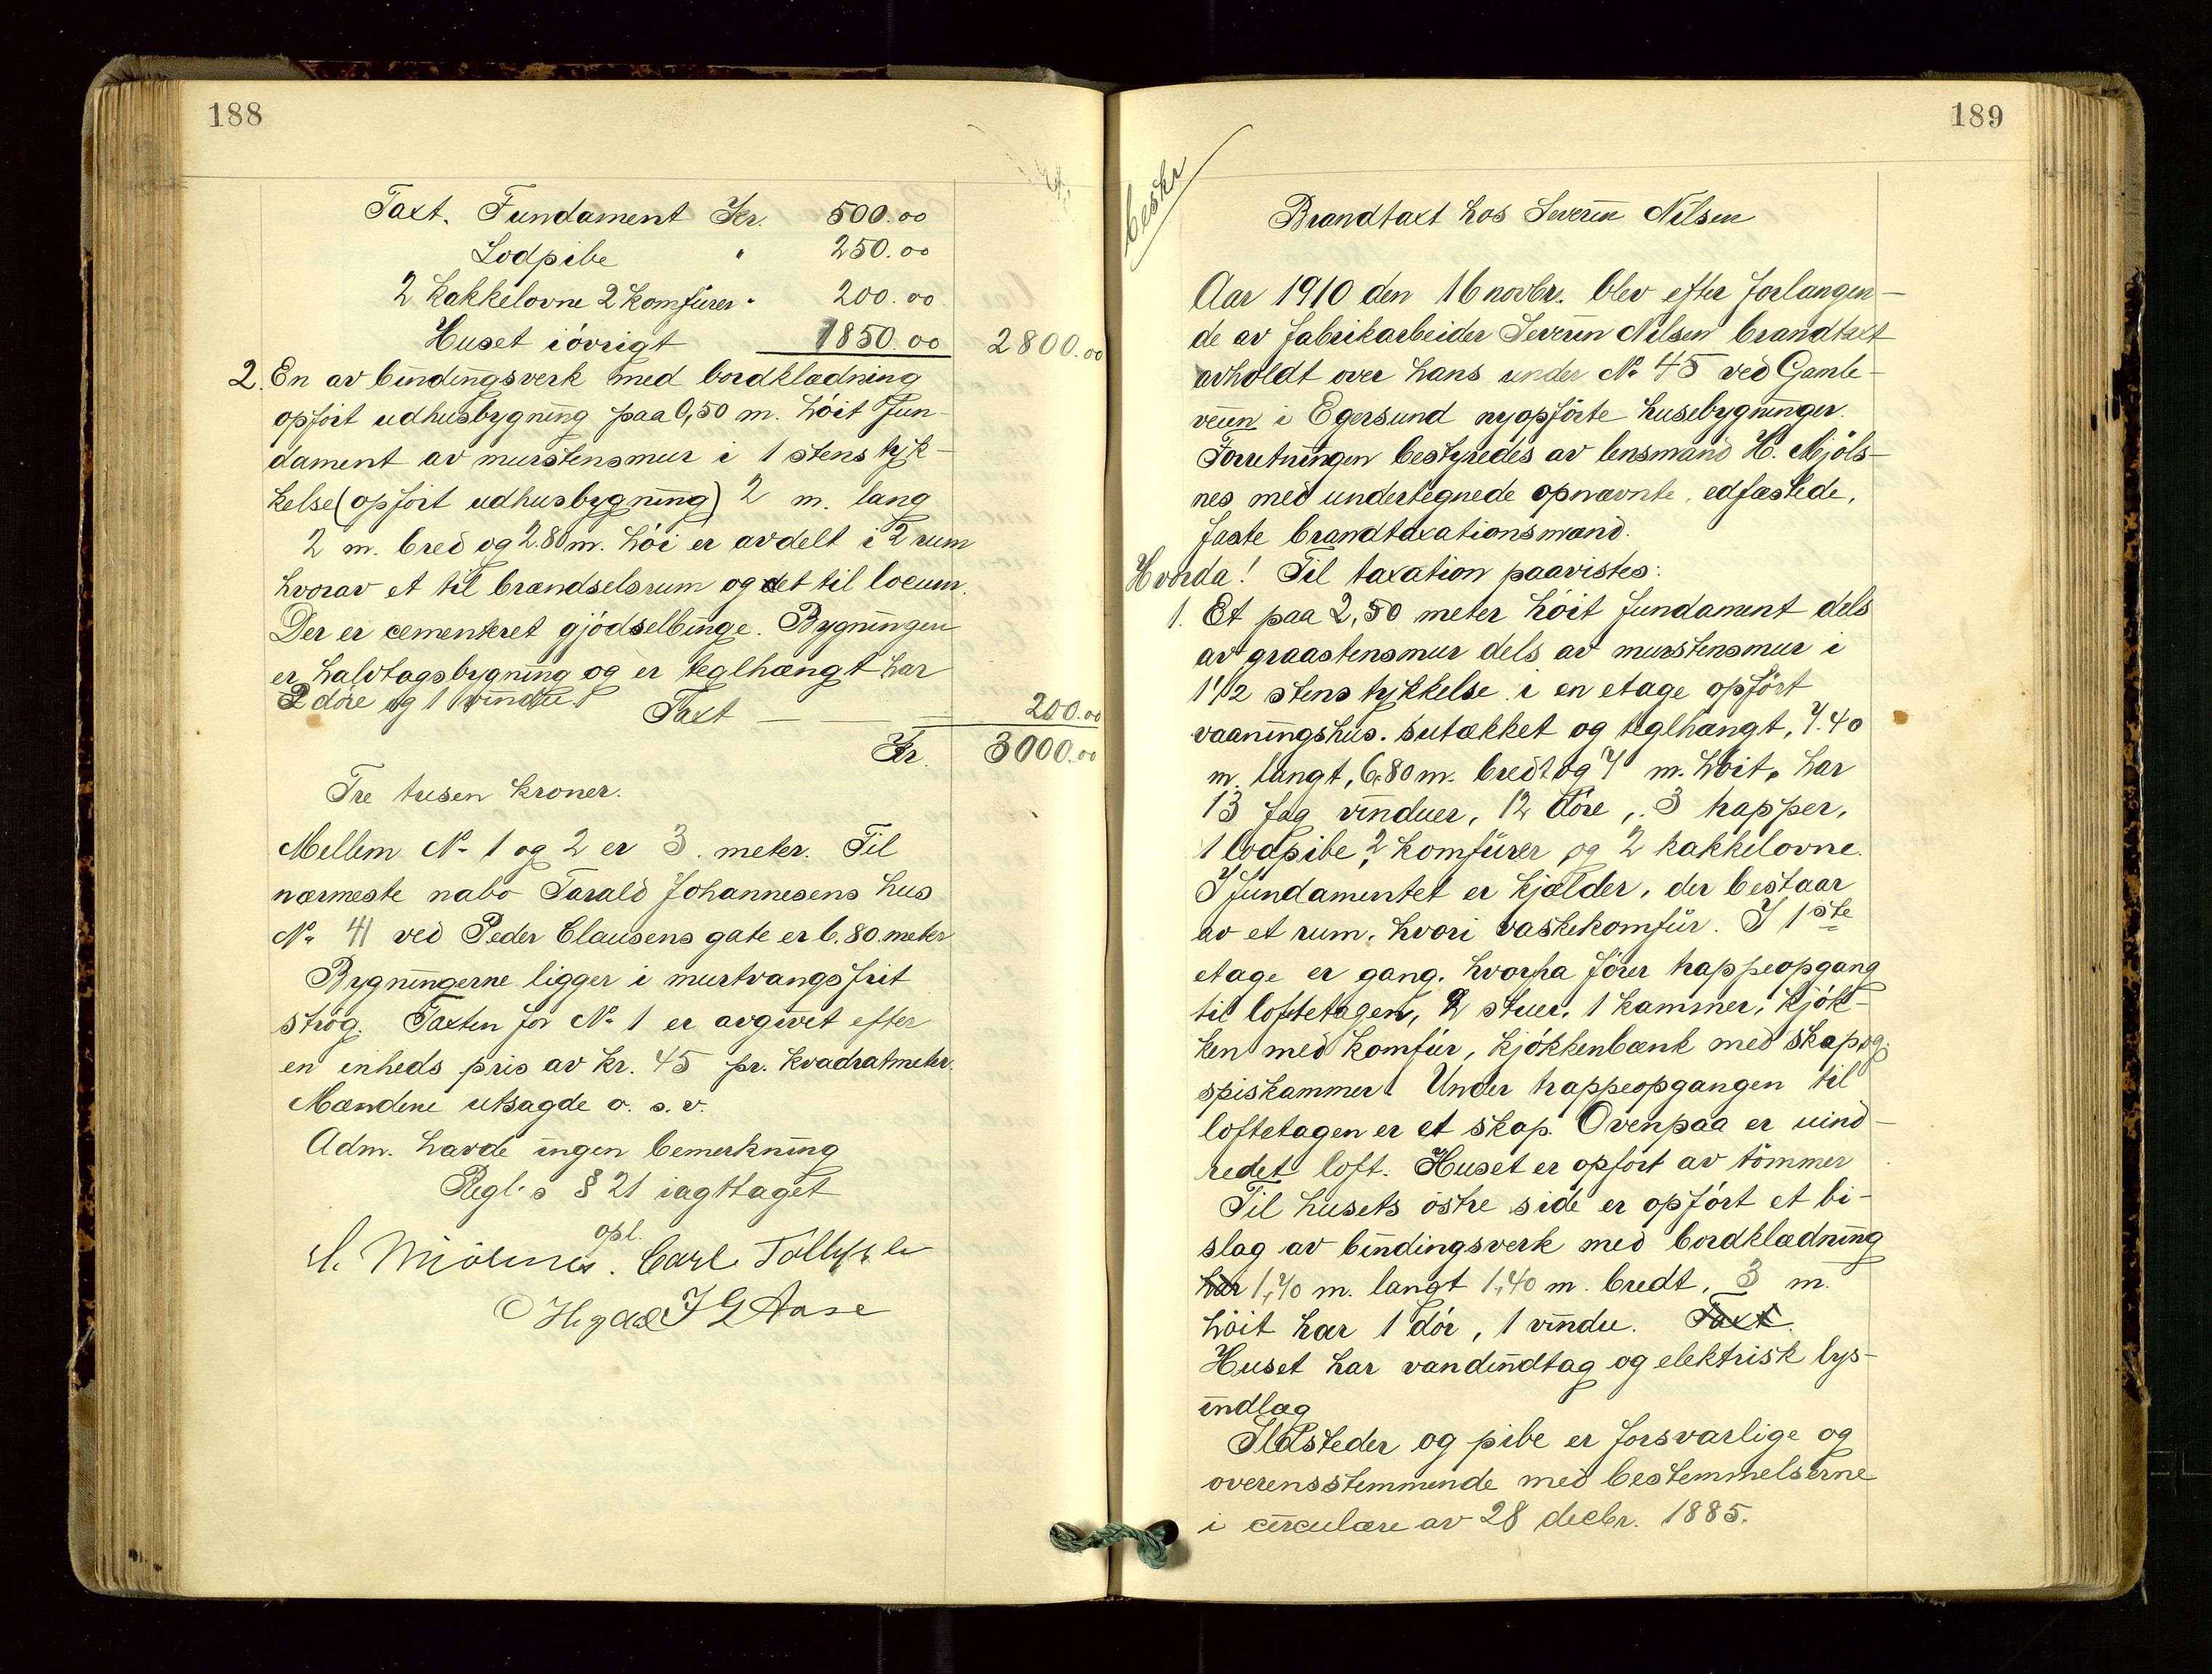 188
Taxt. Fundament Kr. 500.00
Lodpibe " 250.00
2 kakkelovne 2 komfürer " 200.00
Huset iövrigt 1850.00 2800.00
2. En av bindingsverk med bordklædning
opfört udhusbygning paa 0,50 m. höit Fun-
dament av murstensmur i 1 stens tyk-
kelse (opfört udhusbygning) 2 m. lang
2 m. bred og 2.80 m. höi er avdelt i 2 rum
hvorav et til brændselsrum og det til locum.
Der er cementeret gjödselbinge. Bygningen
er halvtagsbygning og er teglhængt har
2 döre og 1 vindue. Taxt — — — 200.00
Kr. 3000.00
Tre tusen kroner.
Mellem No 1 og 2 er 3. meter. Til
nærmeste nabo Tarald Johannesens hus
No 41 ved Peder Clausens gate er 6.80 meter
Bygningerne ligger i murtvangsfrit
strög. Taxten for No 1 er avgivet efter
en enheds pris av kr. 45 pr. kvadratmeter.
Mændene utsagde o. s. v.
Adm. havde ingen bemerkning
Regl.s § 21 iagttaget
opl.
H. Mjölsnes. Carl Tollefsen
O Hegdal I G Aase
189
beskr
Brandtaxt hos Severin Nilsen
Aar 1910 den 16 novbr. blev efter forlangen-
de av fabrikarbeider Severin Nilsen brandtaxt
avholdt over hans under No 45 ved Gamle-
veien i Egersund nyopförte husebygninger.
Forretningen bestyredes av lensmand H. Mjöls-
nes med undertegnede opnævnte, edfæstede,
faste brandtaxationsmænd.
Hvorda! Til taxation paavistes:
1. Et paa 2,50 meter höit fundament dels
av graastensmur dels av murstensmur i
1 1/2 stens tykkelse i en etage opfört
vaaningshus. sutækket og teglhængt, 7.40
m. langt, 6.80 m. bredt og 7 m. höit, har
13 fag vinduer, 12 döre, 3 trapper,
1 lodpibe, 2 komfürer og 2 kakkelovne.
I fundamentet er kjælder, der bestaar
av et rum, hvori vaskekomfür. I 1ste
etage er gang, hvorfra förer trappeopgang
til loftetagen, 2 stuer, 1 kammer, kjök-
ken med komfür, kjökkenbænk med skap og
spiskammer. Under trappeopgangen til
loftetagen er et skap. Ovenpaa er uind-
redet loft. Huset er opfört av tömmer
Til husets östre side er opfört et bi-
slag av bindingsverk med bordklædning
har 1,70 m. langt 1,40 m. bredt, 3 m.
höit har 1 dör, 1 vindu. Taxt.
Huset har vandindtag og elektrisk lys-
indlæg
Ildsteder og pibe er forsvarlige og
overensstemmende med bestemmelserne
i circulære av 28 decbr. 1885.